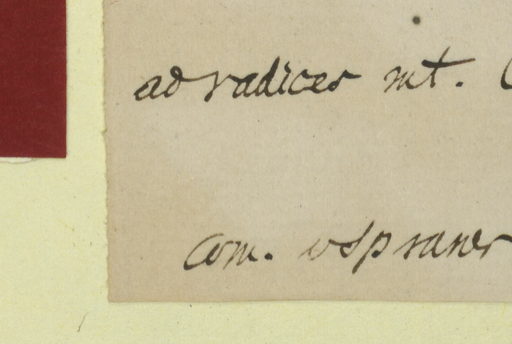 ad radices mt.
com.